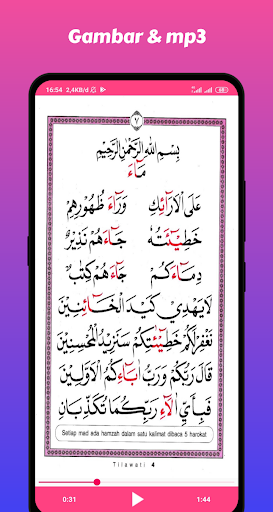 Gambar & mp3
16:54 2,4KB/d
٧
بِسْمِ اللهِ الرَّحْمٰنِ الرَّحِيْمِ
مَآءَ
عَلَى الْاَرَآئِكِ وَرَآءَ ظُهُوْرِهِمْ
خَطِيْٓئَتُهٗ جَآءَهُمْ نَذِيْرٌ
دِمَآءَكُمْ جَآءَهُمْ كِتٰبٌ
لَا يَهْدِيْ كَيْدَ الْخَآئِنِيْنَ
نَغْفِرْلَكُمْ خَطِيْٓئٰتِكُمْ سَنَزِيْدُ الْمُحْسِنِيْنَ
قَالَ رَبُّكُمْ وَرَبُّ اٰبَآئِكُمُ الْاَوَّلِيْنَ
فَبِاَيِّ اٰلَآءِ رَبِّكُمَا تُكَذِّبَانِ
Setiap mad ada hamzah dalam satu kalimat dibaca 5 harokat
Tilawati 4
0:31 1:44